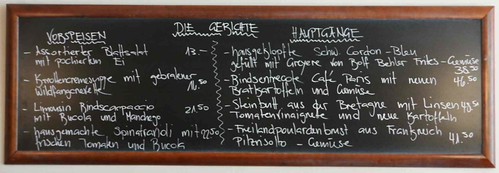 DIE GERICHTE
VORSPEISEN
- Assortierter Blattsalat 13.-
mit pochiertem Ei
- Knollencremesuppe mit gebratener
Wildfangcrevette 16.50
- Limousin Rindscarpaccio 21.50
mit Rucola und Manchego
- hausgemachte Spinatravioli mit 22.50
frischen Tomaten und Rucola
HAUPTGÄNGE
- hausgeklopfte Schw. Cordon-Bleu
gefüllt mit Gruyere von Rolf Beeler Frites - Gemüse
38.50
- Rindsentrecote Café Paris mit neuen 46.50
Bratkartoffeln und Gemüse
- Steinbutt aus der Bretagne mit Linsen 43.50
Tomatenvinaigrete und neue Kartoffeln
- Freilandpoulardenbrust aus Frankreich
Pilzrisotto - Gemüse 41.50